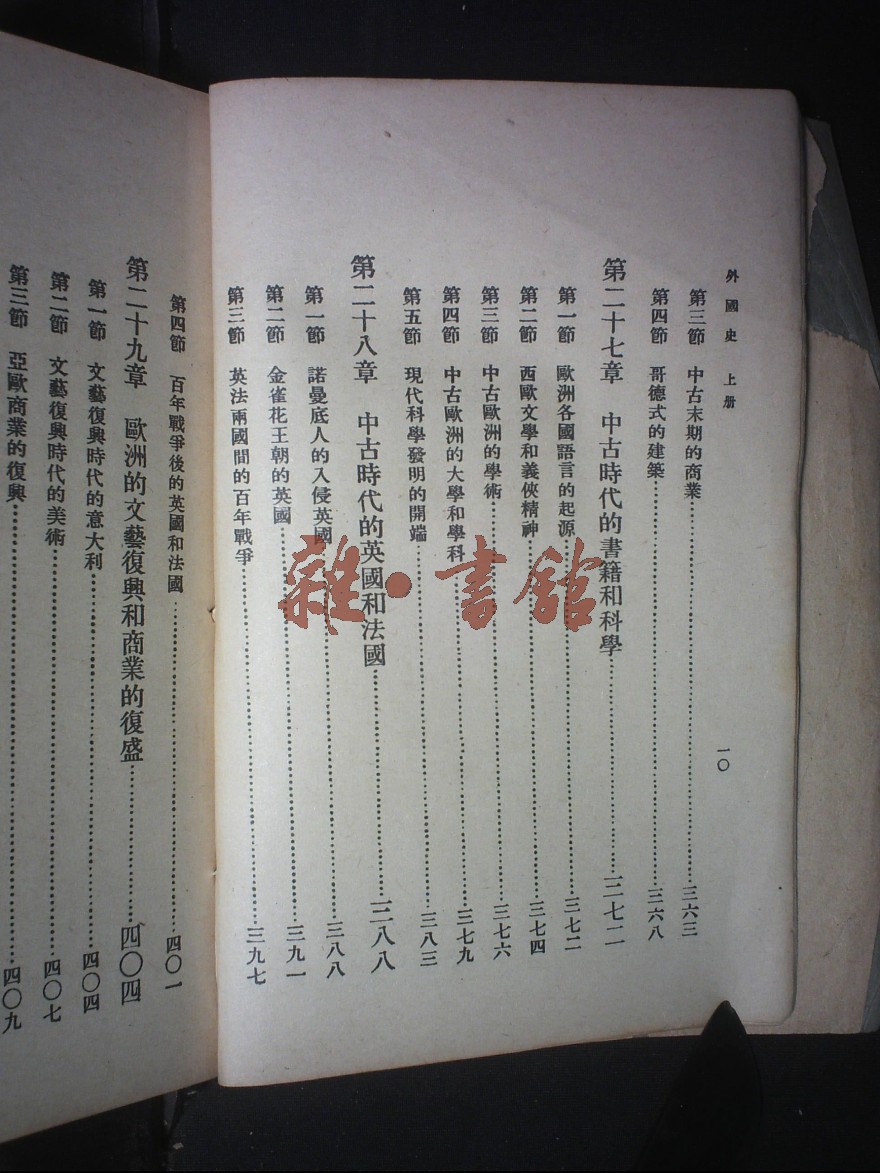 外國史 上册
一〇
第三節 中古末期的商業……三六三
第四節 哥德式的建築……三六八
第二十七章 中古時代的書籍和科學……三七二
第一節 歐洲各國語言的起源……三七二
第二節 西歐文學和義俠精神……三七四
第三節 中古歐洲的學術……三七六
第四節 中古歐洲的大學和學科……三七九
第五節 現代科學發明的開端……三八三
第二十八章 中古時代的英國和法國……三八八
第一節 諾曼底人的入侵英國……三八八
第二節 金雀花王朝的英國……三九一
第三節 英法兩國間的百年戰爭……三九七
第四節 百年戰爭後的英國和法國……四〇一
第二十九章 歐洲的文藝復興和商業的復盛……四〇四
第一節 文藝復興時代的意大利……四〇四
第二節 文藝復興時代的美術……四〇七
第三節 亞歐商業的復興……四〇九
雜·書館